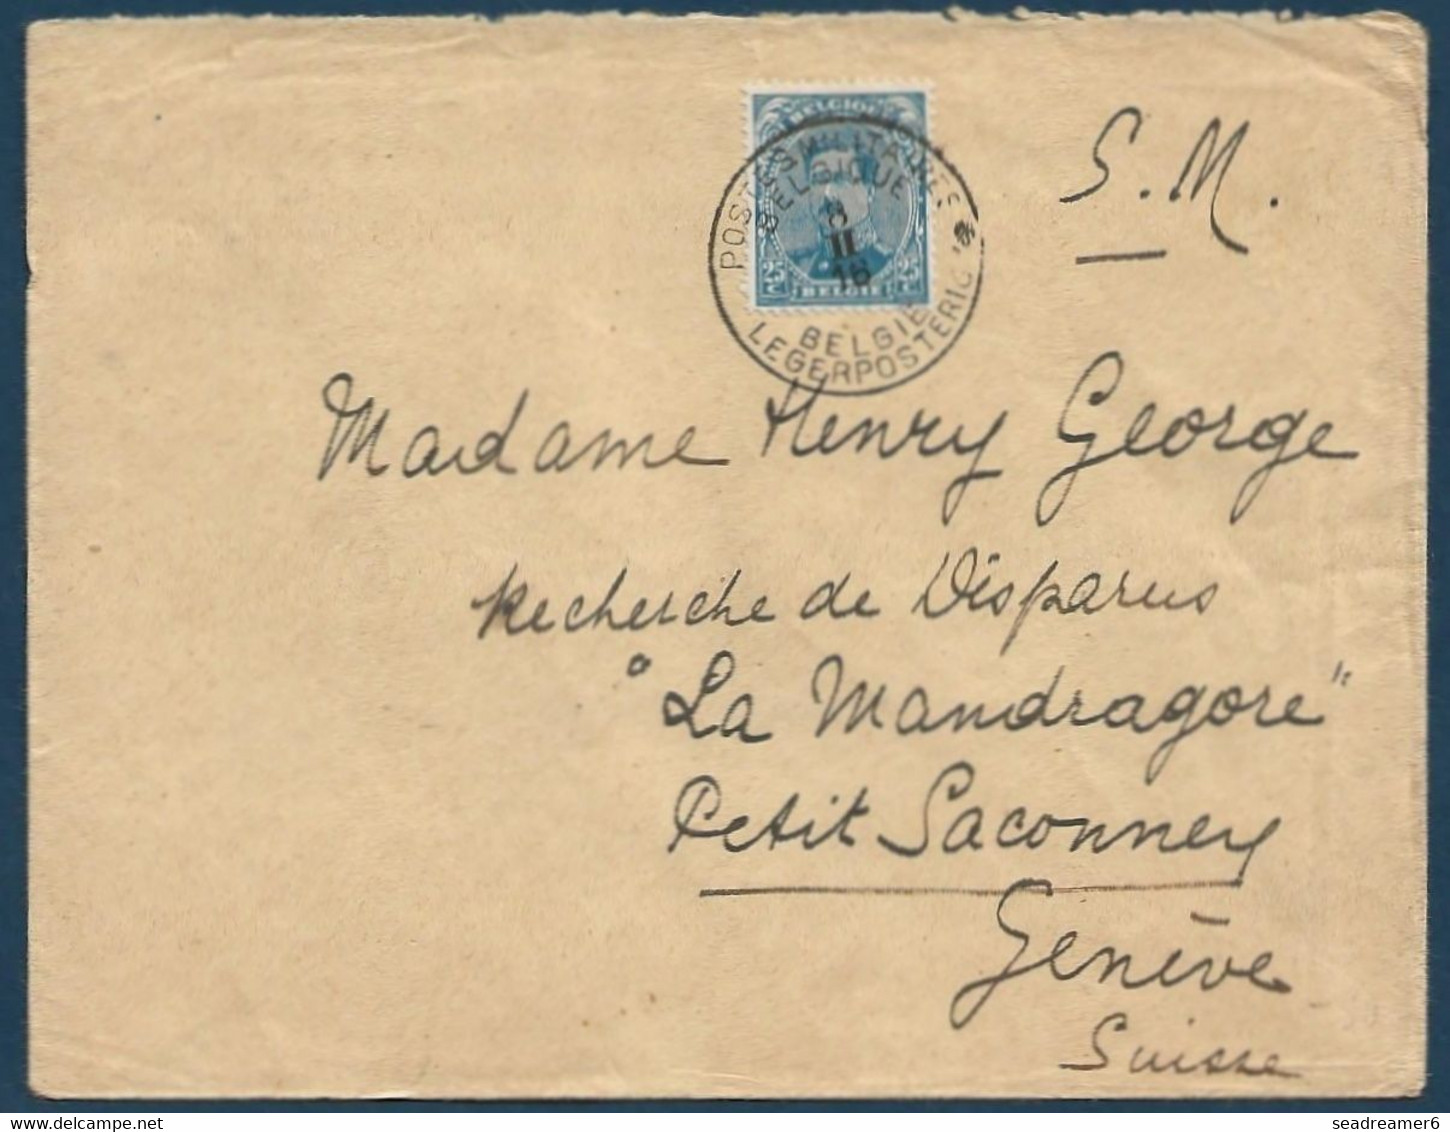 S.M.
BELGIQUE
25 C 25 C
BELGIË
POSTES MILITAIRES
BELGIQUE
II
16
BELGIE
LEGERPOSTERIJ
Madame Henry George
Recherche de Disparus
"La Mandragore"
Petit Saconney
Genève
Suisse
seadreamer6
delcampe.net